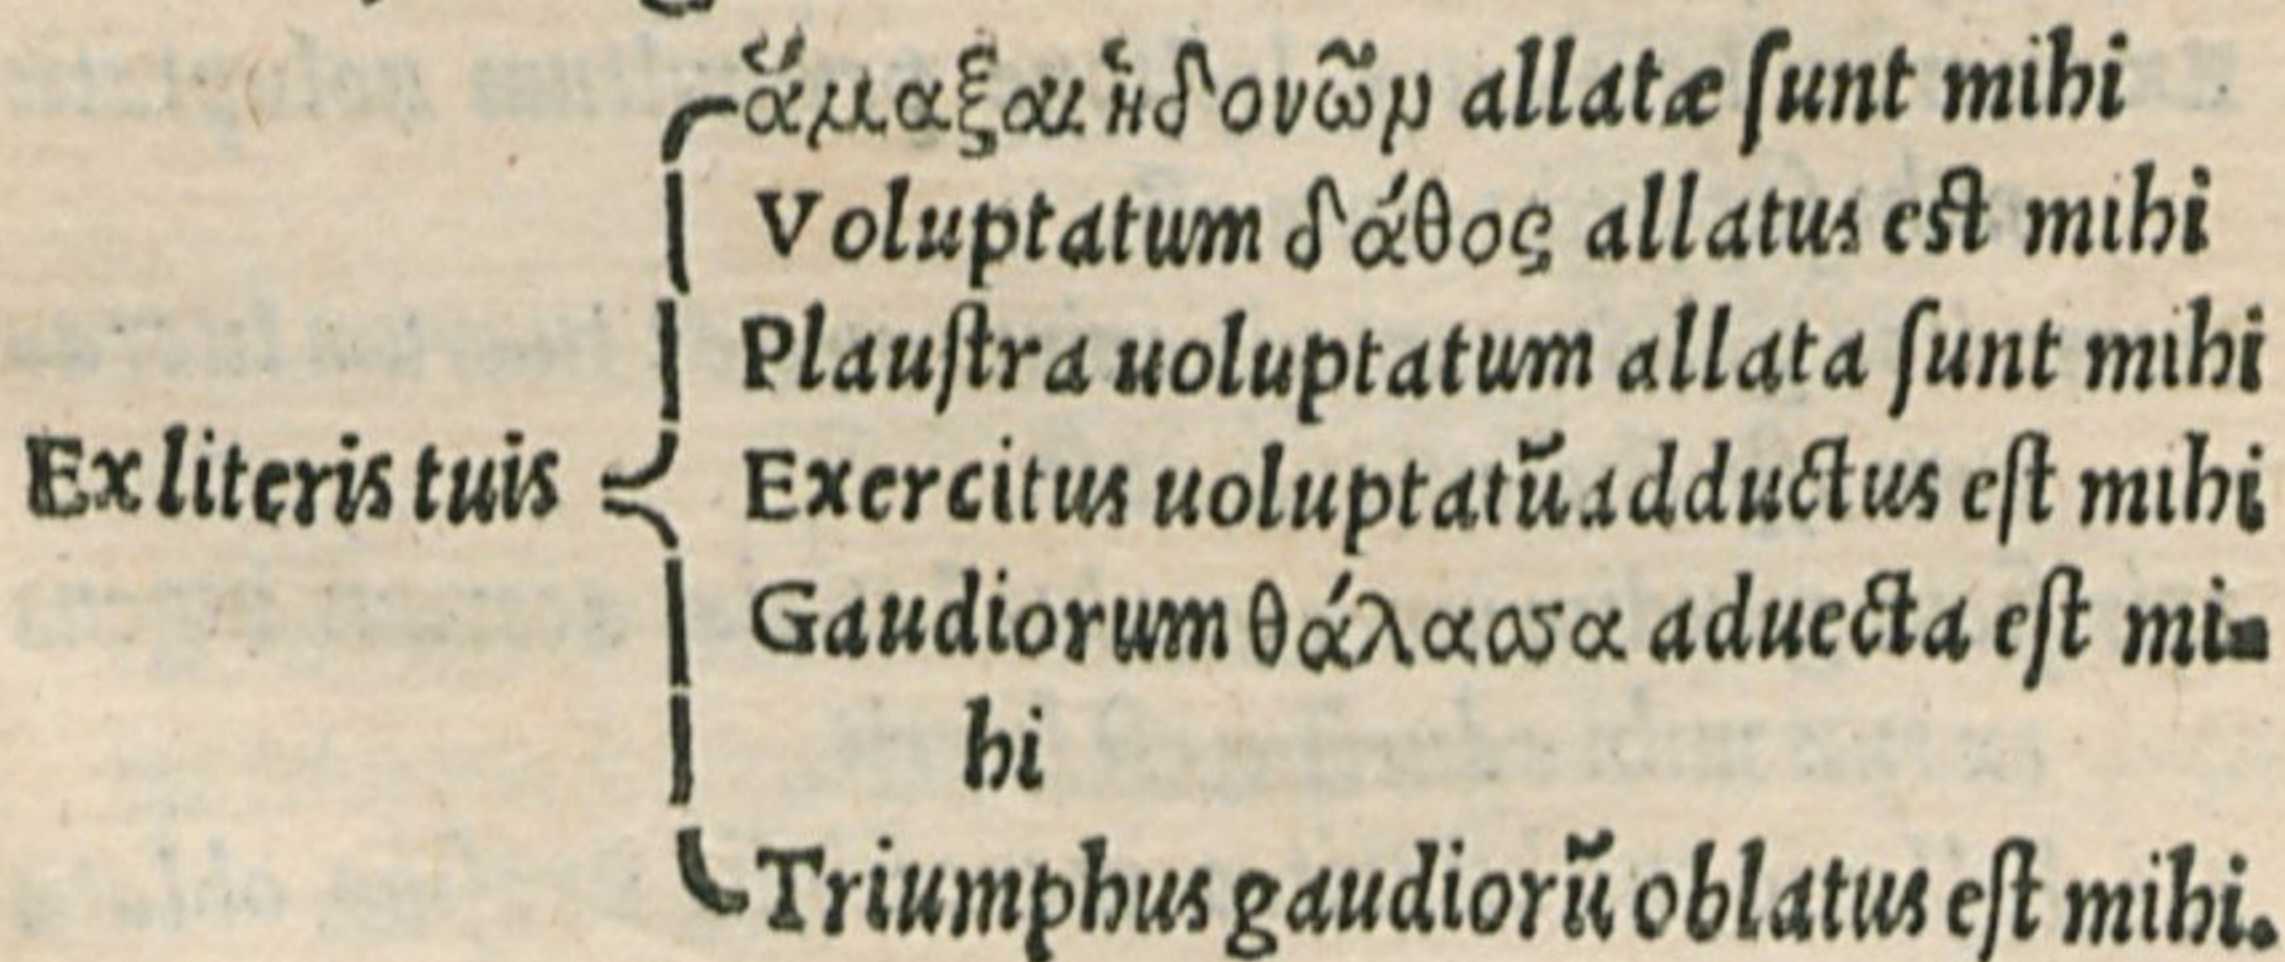 ἅμαξαι ἡδονῶμ allatæ ſunt mihi
Voluptatum δάθος allatus eſt mihi
Plauſtra uoluptatum allata ſunt mihi
Ex literis tuis
Exercitus uoluptatũ adductus eſt mihi
Gaudiorum θάλασσα aduecta eſt mi-
hi
Triumphus gaudiorũ oblatus eſt mihi.